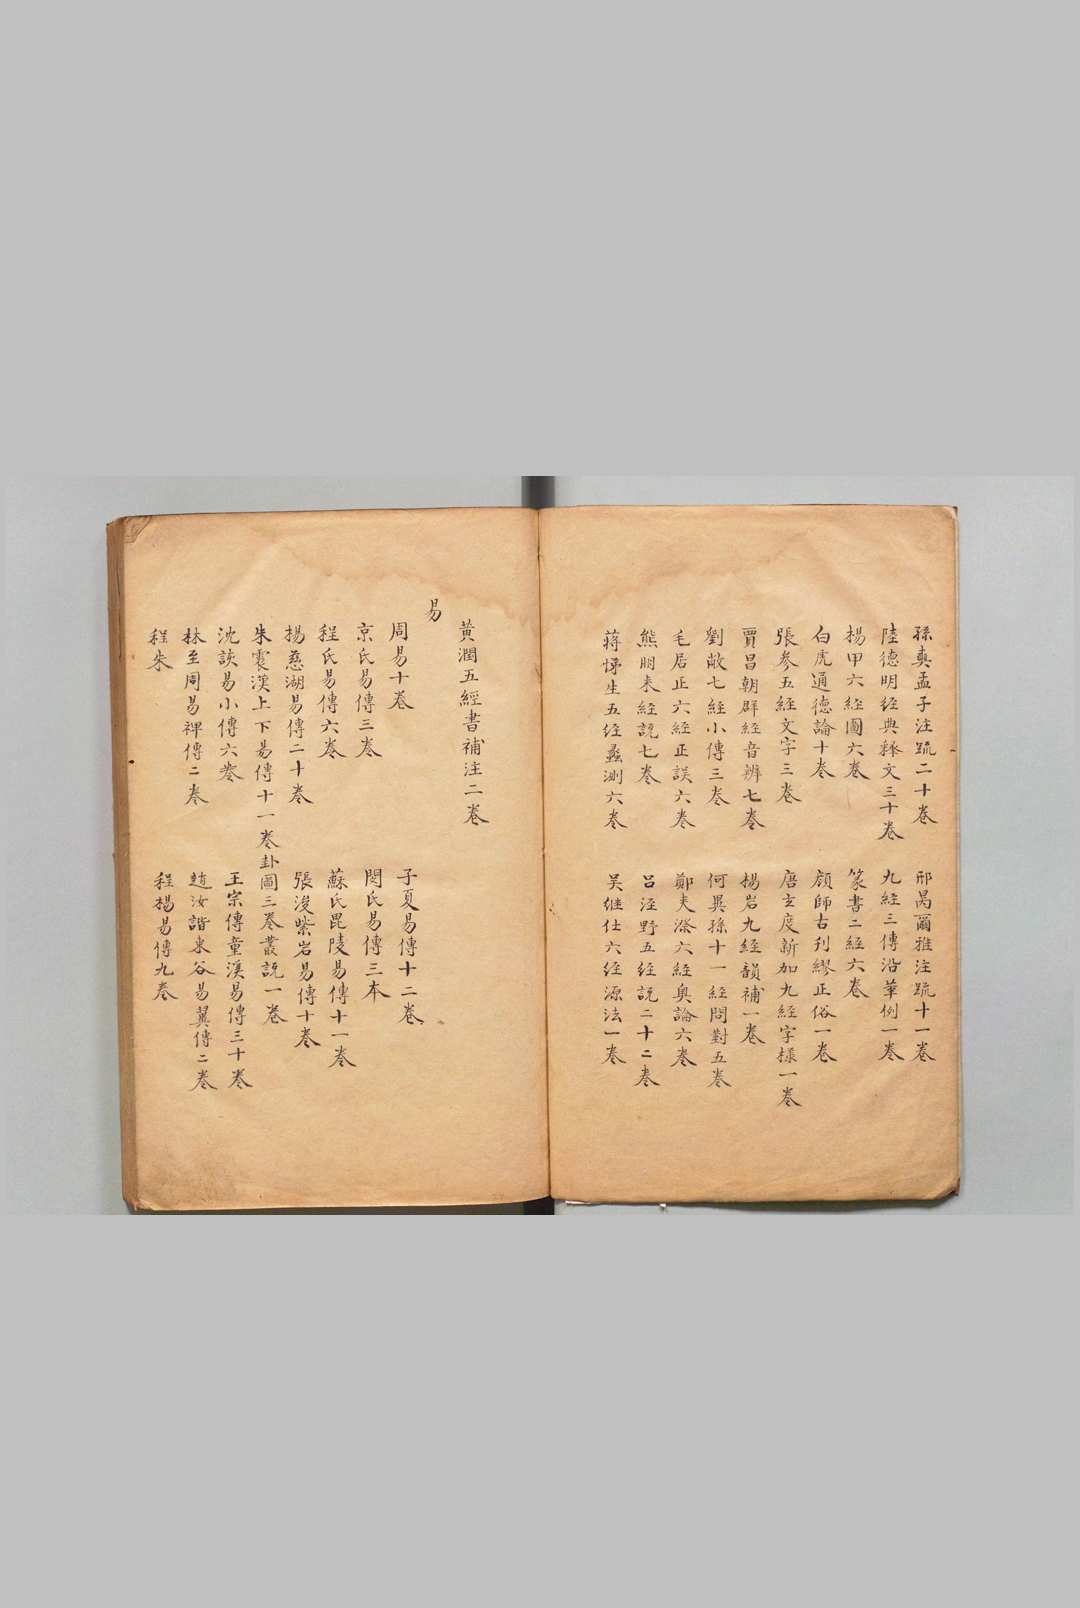 孫奭孟子注疏二十卷　邢昺爾雅注疏十一卷
陸德明經典釋文三十卷　九經三傳沿革例一卷
楊甲六經圖六卷　篆書二經六卷
白虎通德論十卷　顏師古刊繆正俗一卷
張參五經文字三卷　唐玄度新加九經字樣一卷
賈昌朝群經音辨七卷　楊岩九經韻補一卷
劉敞七經小傳三卷　何異孫十一經問對五卷
毛居正六經正誤六卷　鄭夾漈六經奥論六卷
熊朋来經説七卷　呂涇野五經説二十二卷
蔣悌生五經蠡測六卷　吴继仕六經源法一卷
黄潤五經書補注二卷
易
周易十卷　子夏易傳十二卷
京氏易傳三卷　関氏易傳三本
程氏易傳六卷　蘇氏毘陵易傳十一卷
楊慈湖易傳二十卷　張浚紫岩易傳十卷
朱震漢上下易傳十一卷卦圖三卷叢説一卷
沈該易小傳六卷　王宗傳童溪易傳三十卷
林至周易裨傳二卷　趙汝諧東谷易翼傳二卷
程朱　程楊易傳九卷